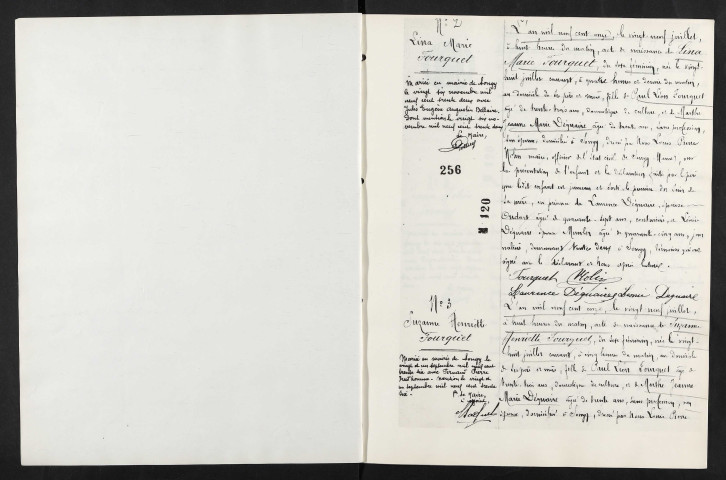 N° 2
Lina Marie
Fourquet
Mariée en mairie de Songy
le vingt six novembre mil
neuf cent trente deux avec
Jules Eugène Augustin
Dont mention le vingt six no-
vembre mil neuf cent trente deux
Le Maire,
256
120
L'an mil neuf cent onze, le vingt neuf juillet,
à huit heures du matin, acte de naissance de Lina
Marie Fourquet, du sexe féminin, née le vingt
huit juillet courant, à quatre heures et demie du matin,
au domicile de ses père et mère, fille de Paul Léon Fourquet
âgé de trente trois ans, domestique de culture, et de Marthe
Jeanne Marie Déquaire âgée de trente ans, sans profession,
son épouse, domiciliés à Songy, dressé par Nous Louis Pierre
Molin maire, officier de l'état civil de Songy (Marne), sur
la présentation de l'enfant et la déclaration faite par le père
que ledit enfant est jumeau et sorti le premier du sein de
sa mère, en présence de Laurence Déquaire, épouse
âgée de quarante sept ans, couturière, et Léonie
Déquaire épouse âgée de quarante cinq ans, jour
nalière, demeurant toutes deux à Songy, témoins qui ont
signé avec le déclarant et Nous après lecture.
Fourquet Molin
Laurence Déquaire Léonie Déquaire
N° 3
Suzanne Henriette
Fourquet
Mariée en mairie de Songy le
vingt et un septembre mil neuf cent
trente avec Fernand Pierre
mention le vingt et
un septembre mil neuf cent trente
Le Maire,
L'an mil neuf cent onze, le vingt neuf juillet,
à huit heures du matin, acte de naissance de Suzanne
Henriette Fourquet, du sexe féminin, née le vingt
huit juillet courant, à cinq heures du matin, au domicile
de ses père et mère, fille de Paul Léon Fourquet âgé de
trente trois ans, domestique de culture, et de Marthe Jeanne
Marie Déquaire âgée de trente ans, sans profession, son
épouse, domiciliés à Songy, dressé par Nous Louis Pierre